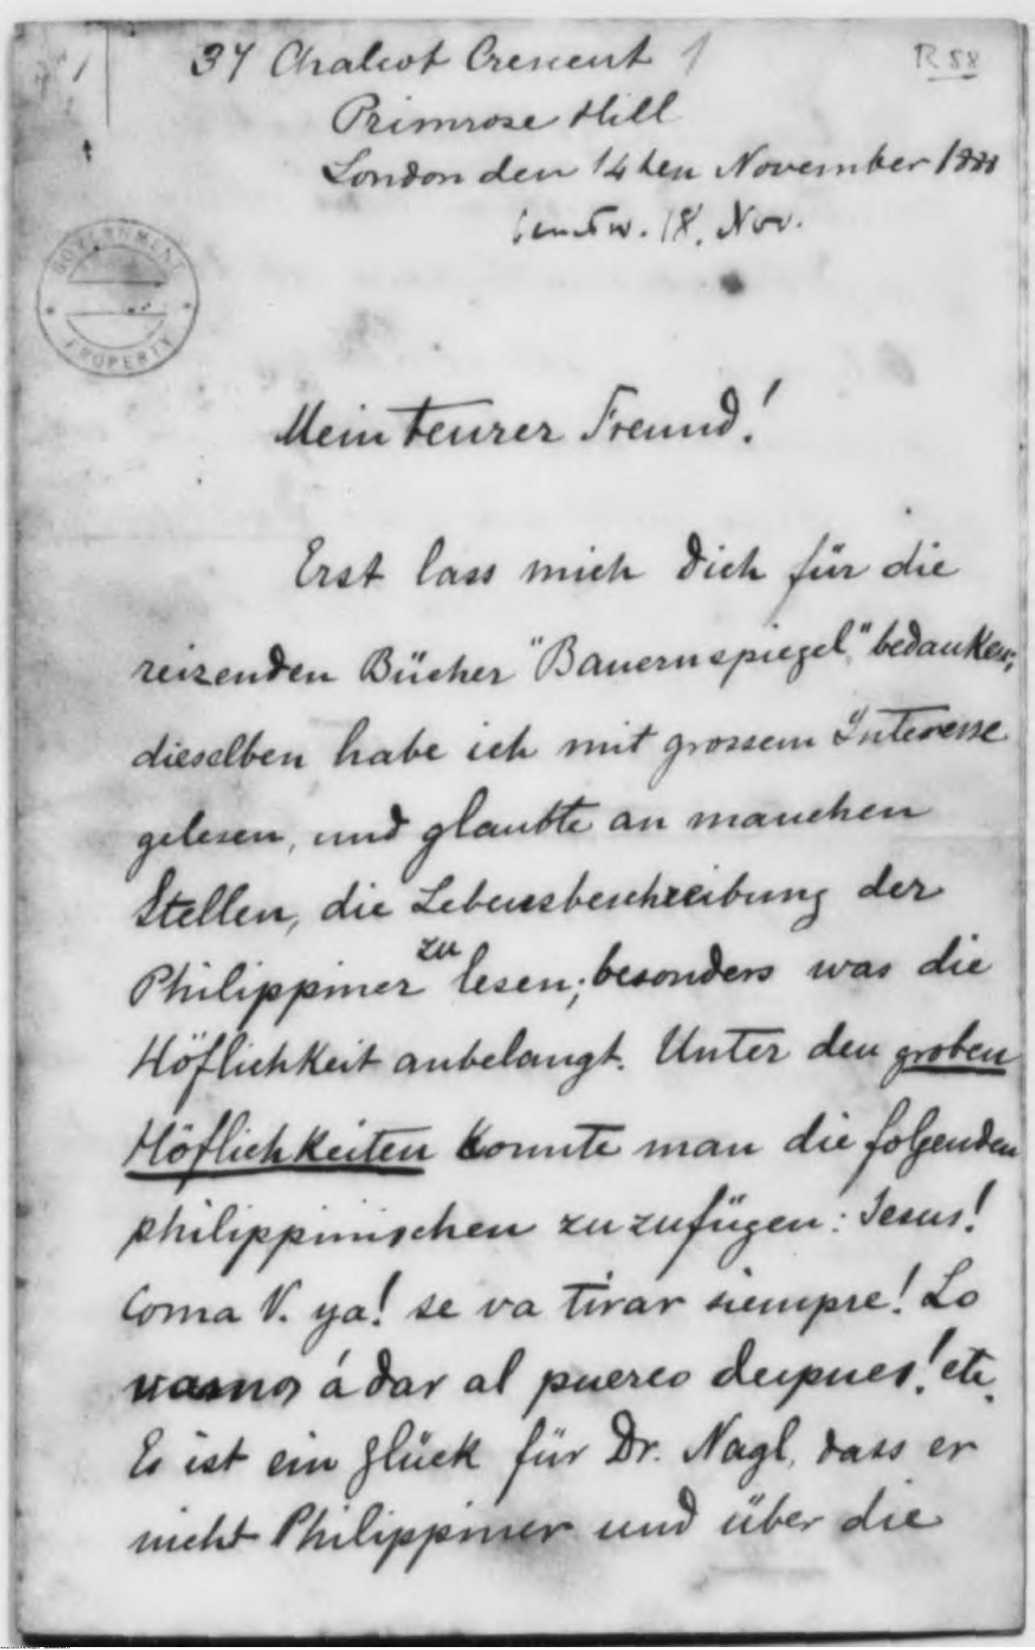 37 Chalcot Crescent 1
R 88
Primrose Hill
London den 14ten November 1888
18. Nov.
GOVERNMENT
PROPERTY
Mein teurer Freund!
Erst lass mich Dich für die
reizenden Bücher "Bauernspiegel" bedanken;
dieselben habe ich mit grossem Interesse
gelesen, und glaubte an manchen
Stellen, die Lebensbeschreibung der
Philippiner zu lesen; besonders was die
Höflichkeit anbelangt. Unter den groben
Höflichkeiten konnte man die folgenden
philippinischen zuzufügen: Jesus!
Coma V. ya! se va tirar siempre! Lo
vamos á dar al puerco despues! etc.
Es ist ein Glück für Dr. Nagl, dass er
nicht Philippiner und über die